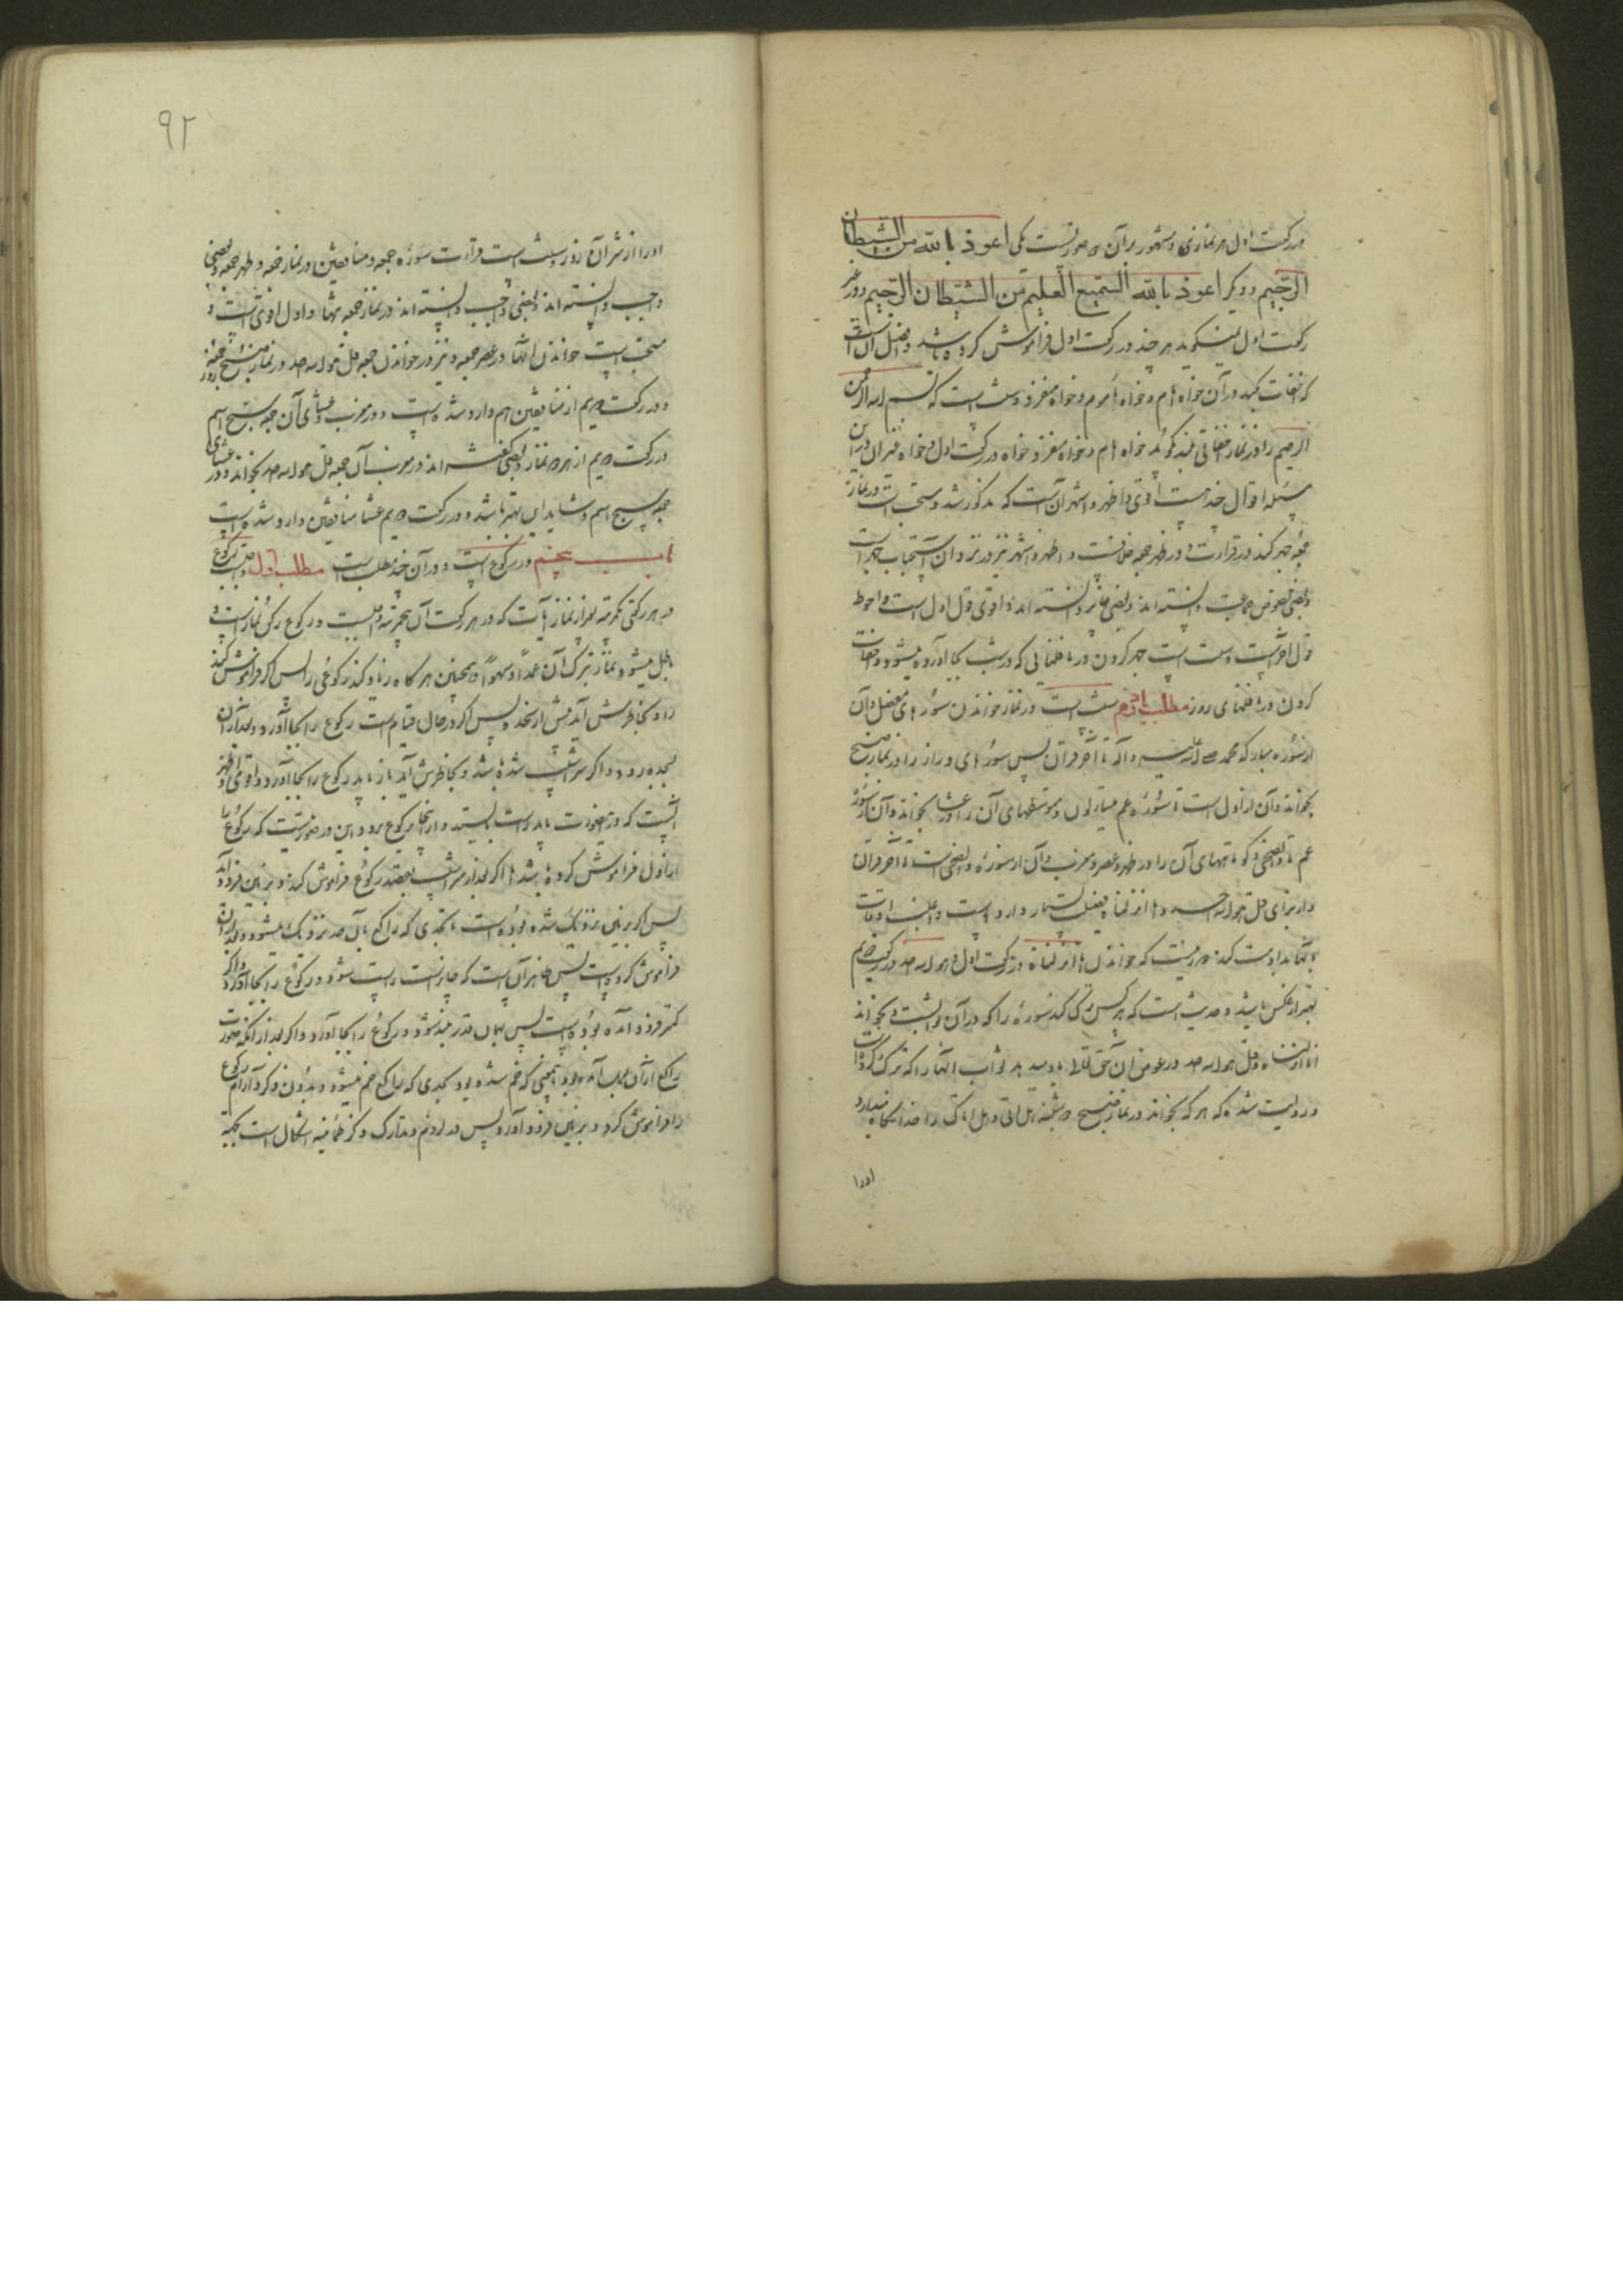 در رکعت اول هر نمازی و مشهور بر آن دو صورتست یکی اعوذ بالله من الشیطان
الرجیم و دیگر اعوذ بالله السمیع العلیم من الشیطان الرجیم و در غیر
رکعت اول نمیگوید هر چند در رکعت اول فراموش کرده باشد و افضل آن است
که اخفات کند در آن خواه امام و خواه ماموم و خواه منفرد و سنت است که بسم الله الرحمن
الرحیم را در نماز اخفاتی بلند گوید خواه امام و خواه منفرد خواه در رکعت اول و خواه غیر آن و در این
مسئله اقوال چند است اقوی و اظهر و اشهر آن است که مذکور شد و سنت است در نماز
جمعه جهر کند در قرائت و در ظهر جمعه خلافست و اظهر و اشهر نیز در نزد من استحباب جهر است
و بعضی مخصوص جماعت دانسته اند و بعضی جایز دانسته اند و اقوی قول اول است و احوط
قول آخر است و سنت است جهر کردن در نافلهایی که در شب بجا آورده میشود و اخفات
کردن در نافلهای روز مطلب سنت است در نماز خواندن سوره های مفصل و آن
از سوره مبارکه محمد صلی الله علیه و آله تا آخر قرآن پس سوره های دراز را در نماز صبح
بخواند و آن از اول است تا سوره عم یتسائلون و متوسطهای آن را در عشا بخواند و آن از سوره
عم تا والضحی و کوتاههای آن را در ظهر و عصر و مغرب و آن از سوره والضحی است تا آخر قرآن
و از برای قل هو الله احد و انا انزلناه فضل بسیار وارد است و اغلب اوقات
بانها مداومت کند و سنت که خواندن انا انزلناه در رکعت اول و هو الله احد در رکعت دویم
بهتر از عکس باشد و حدیث است که هر کس ترک کند سوره را که در آن ثوابست و بخواند
انا انزلناه و قل هو الله احد در عوض آن حق تعالی باو میدهد ثواب آنها را که ترک کرده است
و روایت شده که هر که بخواند در نماز صبح دوشنبه هل اتی و هل اتاک را خدا نگاه میدارد
اورا
۹۲
او را از شر آن روز و سنت است قرائت سوره جمعه و منافقین در نماز جمعه و ظهر جمعه و بعضی
واجب دانسته اند و بعضی واجب دانسته اند در نماز جمعه تنها و اول اقوی است و
مستحب است خواندن آنها در عصر جمعه و نیز در خواندن جمعه و قل هو الله احد در نماز صبح روز جمعه
و در رکعت دویم از منافقین هم وارد شده است و در مغرب و عشای آن جمعه و سبح اسم
در رکعت دویم از هر دو نماز و بعضی گفته اند در مغرب آن جمعه و قل هو الله احد بخواند و در عشای
جمعه و سبح اسم و شاید این بهتر باشد و در رکعت دویم عشا منافقین وارد شده است
باب پنجم در رکوع است و در آن چند مطلب است مطلب اول واجب است رکوع
در هر رکعتی یکمرتبه بغیر از نماز آیات که در هر رکعت آن پنج مرتبه واجبست و رکوع رکن نماز است و
باطل میشود نماز بترک آن عمدا و سهوا و همچنین هر گاه زیاد کند رکوعی را پس اگر فراموش کند
او را و بخاطرش آید پیش از سجده پس اگر در حال قیام است رکوع را بجا آورد و بعد از آن
بسجده رود و اگر سراشیب شده باشد و بخاطرش آید باز باید رکوع را بجا آورد و اقوی و اظهر
آنست که در اینصورت باید راست بایستد و از آنجا برکوع برود و این در صورتیست که رکوع را
از اول فراموش کرده باشد اما اگر بعد از سراشیب بقصد رکوع فراموش کند و بر زمین فرود آید
پس اگر بزمین نزدیک شده بوده است بحدی که راکع بآن حد نزدیک میشود و بعد از آن
فراموش کرده است پس ظاهر آن است که جایز نیست راست شود و رکوع را بجا آورد و اگر
کمتر فرود آمده بوده است پس بهمان قدر بلند شود و رکوع را بجا آورد و اگر بعد از آنکه بصورت
راکع از آن بهم آمده بود بمعنی که خم شده بود بحدی که راکع خم میشود و بدون ذکر و آرام رکوع
را فراموش کرد و بزمین فرود آورد پس در لزوم و تدارک ذکر و طمانینه اشکال است بجهة